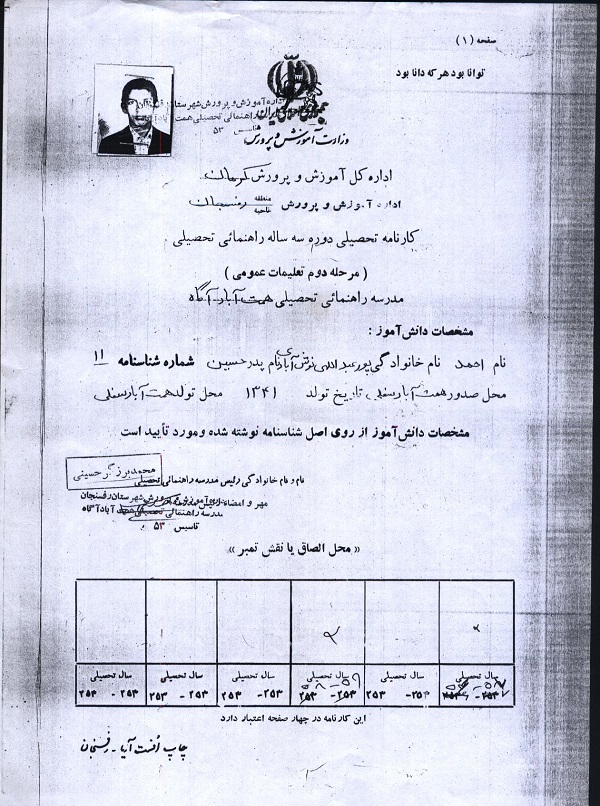 صفحه (۱)
توانا بود هر که دانا بود
جمهوری اسلامی ایران
وزارت آموزش و پرورش
اداره آموزش و پرورش شهرستان رفسنجان
راهنمائی تحصیلی همت آباد آگاه
تاسیس ۵۳
اداره کل آموزش و پرورش کرمان
اداره آموزش و پرورش منطقه ناحیه رفسنجان
کارنامه تحصیلی دوره سه ساله راهنمائی تحصیلی
(مرحله دوم تعلیمات عمومی)
مدرسه راهنمائی تحصیلی همت آباد آگاه
مشخصات دانش آموز :
نام احمد نام خانوادگی پورعبدالهی نام پدر حسین شماره شناسنامه ۱۱
محل صدور همت آباد سفلی تاریخ تولد ۱۳۴۱ محل تولد همت آباد سفلی
مشخصات دانش آموز از روی اصل شناسنامه نوشته شده و مورد تأیید است
نام و نام خانوادگی رئیس مدرسه راهنمائی تحصیلی
محمد برزگر حسینی
مهر و امضاء رئیس مدرسه
آموزش و پرورش شهرستان رفسنجان
مدرسه راهنمائی تحصیلی همت آباد آگاه
تاسیس ۵۳
« محل الصاق یا نقش تمبر »
سال تحصیلی سال تحصیلی سال تحصیلی سال تحصیلی سال تحصیلی سال تحصیلی
۲۵۳ - ۲۵۳ ۲۵۳ - ۲۵۳ ۲۵۳ - ۲۵۳ ۲۵۳ - ۲۵۳
این کارنامه در چهار صفحه اعتبار دارد
چاپ افست آریا - رفسنجان